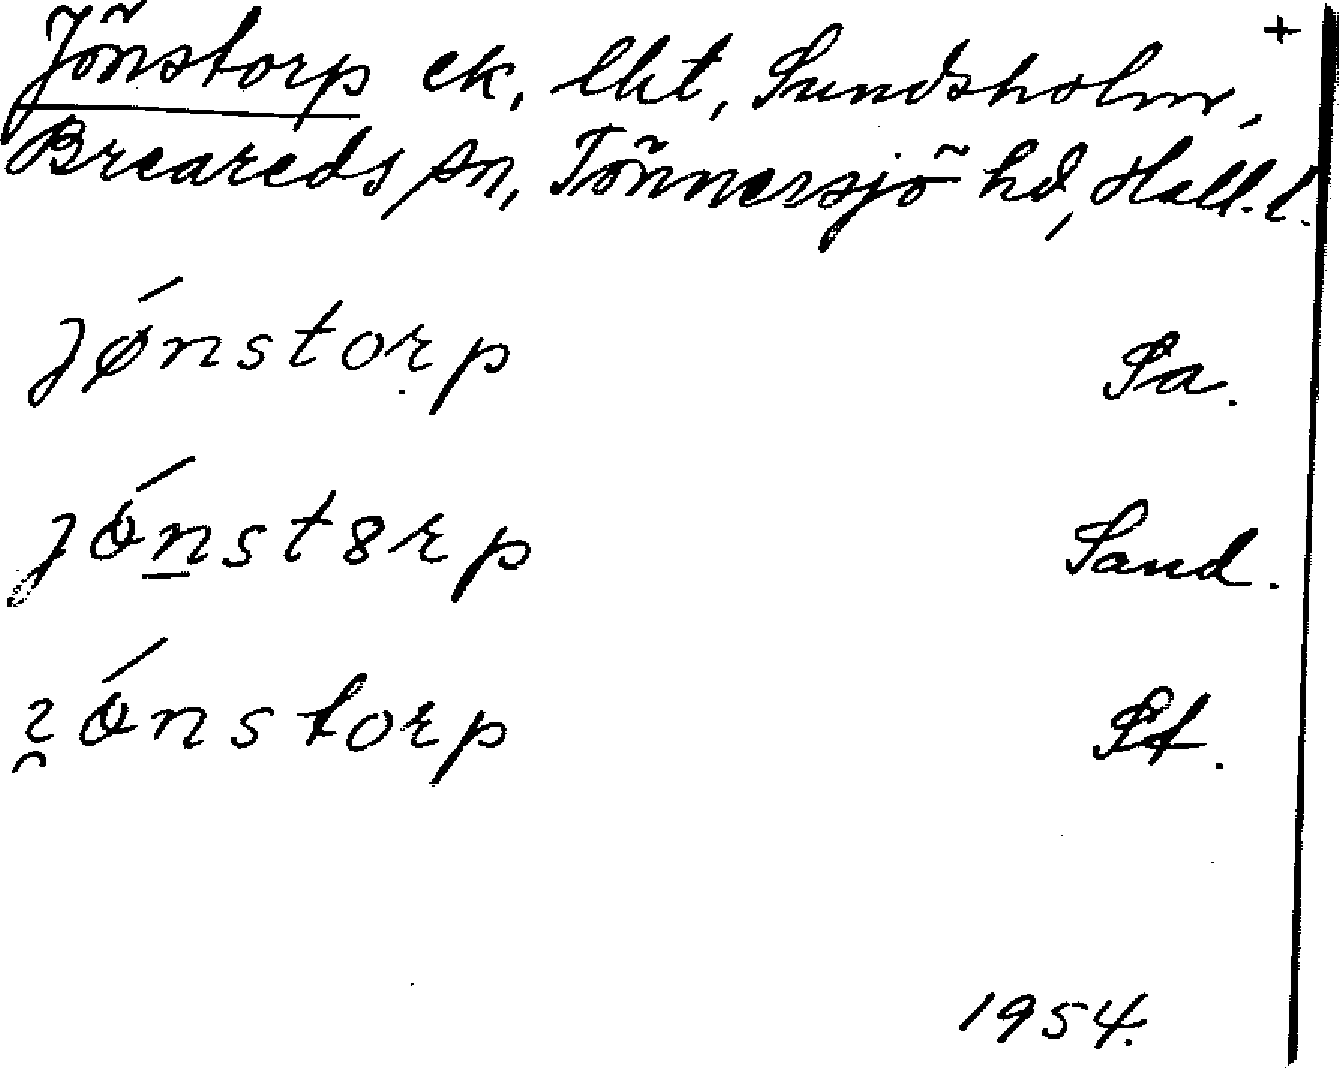 Jönstorp ek, lht, Sundsholm, +
Breareds sn, Tönnersjö hd, Hall. l.
jǿnstorp Sa.
jónst8rp Sand.
ónstorp St.
1954.